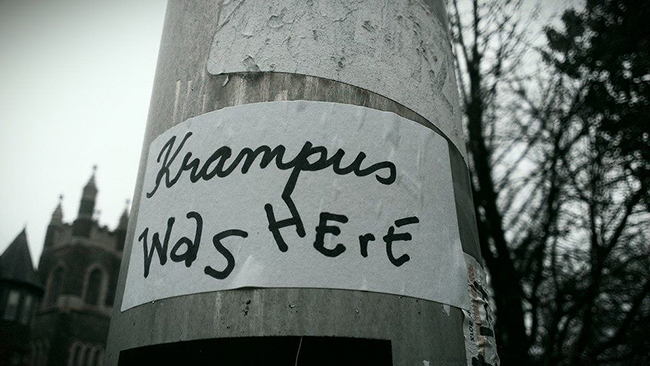 Krampus
Was HErE